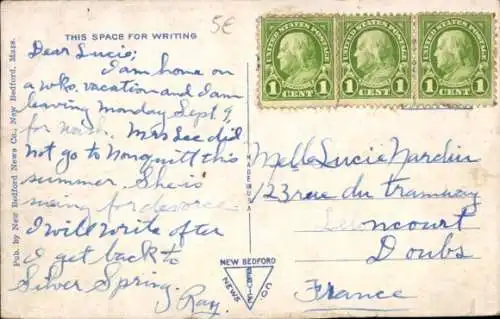 5€
THIS SPACE FOR WRITING
Dear Lucie;
I am home on
a wks. vacation and I am
leaving Monday Sept 9,
for
Mrs Lee did
not go to Nonquitt this
summer. She is
suing for devorce
I will write after
I get back to
Silver Spring.
Ray.
Pub. by New Bedford News Co., New Bedford, Mass.
MADE IN USA
NEW BEDFORD
NEWS
CO.
UNITED STATES POSTAGE
FRANKLIN
1 CENT 1
UNITED STATES POSTAGE
FRANKLIN
1 CENT 1
UNITED STATES POSTAGE
FRANKLIN
1 CENT 1
Melle Lucie Nardin
123 rue du tramway
Doubs
France